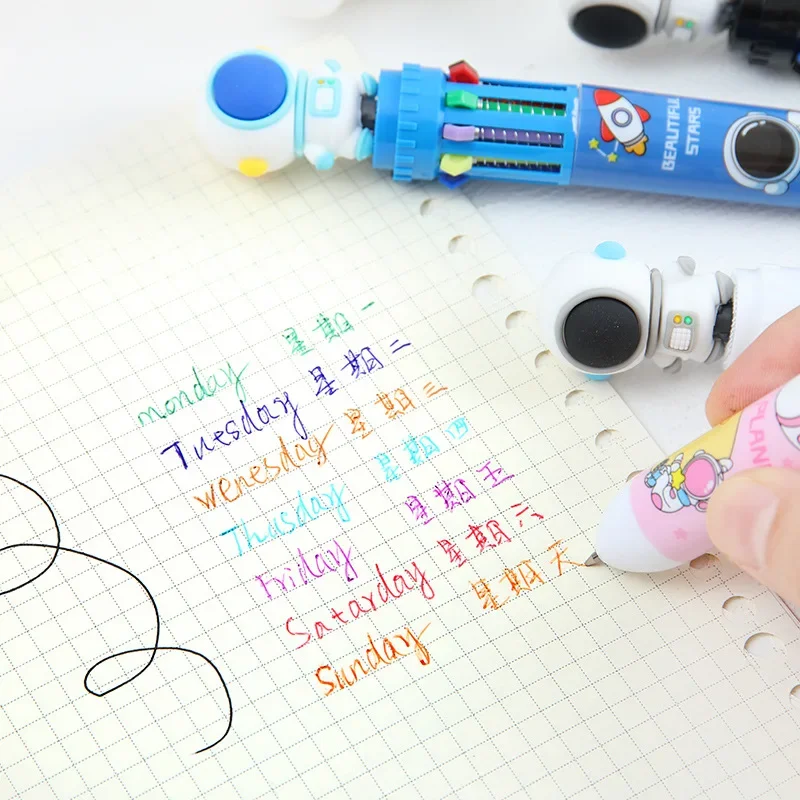 BEAUTIFUL
STARS
monday 星期一
Tuesday 星期二
wenesday 星期三
Thusday 星期四
Friday 星期五
Satarday 星期六
Sunday 星期天
PLAN